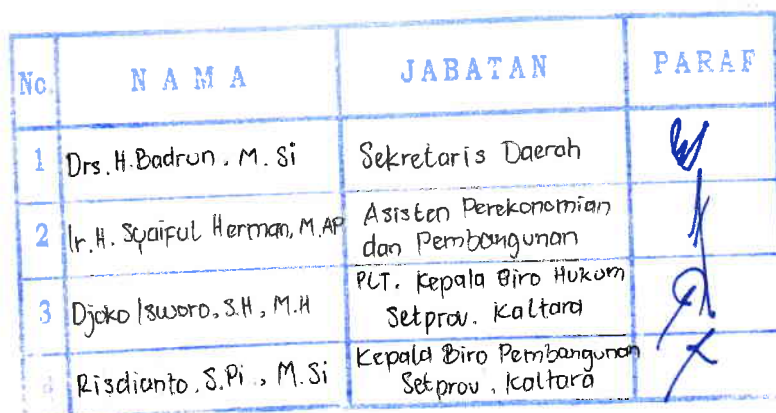 No. NAMA JABATAN PARAF
1 Drs. H. Badrun, M. Si Sekretaris Daerah
2 Ir. H. Syaiful Herman, M.AP Asisten Perekonomian
dan Pembangunan
3 Djoko Isworo, S.H, M.H PLT. Kepala Biro Hukum
Setprov. Kaltara
4 Risdianto, S.Pi., M.Si Kepala Biro Pembangunan
Setprov. Kaltara